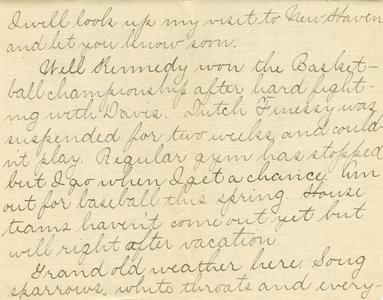 I will look up my visit to New Haven
and let you know soon.
Well Kennedy won the Basket-
ball championship after hard fight-
ing with Davis. Dutch Finessy was
suspended for two weeks and could-
n't play. Regular gym has stopped
but I go when I get a chance. I'm
out for baseball this spring. House
teams haven't come out yet but
will right after vacation.
Grand old weather here. Song
sparrows, white throats and every-